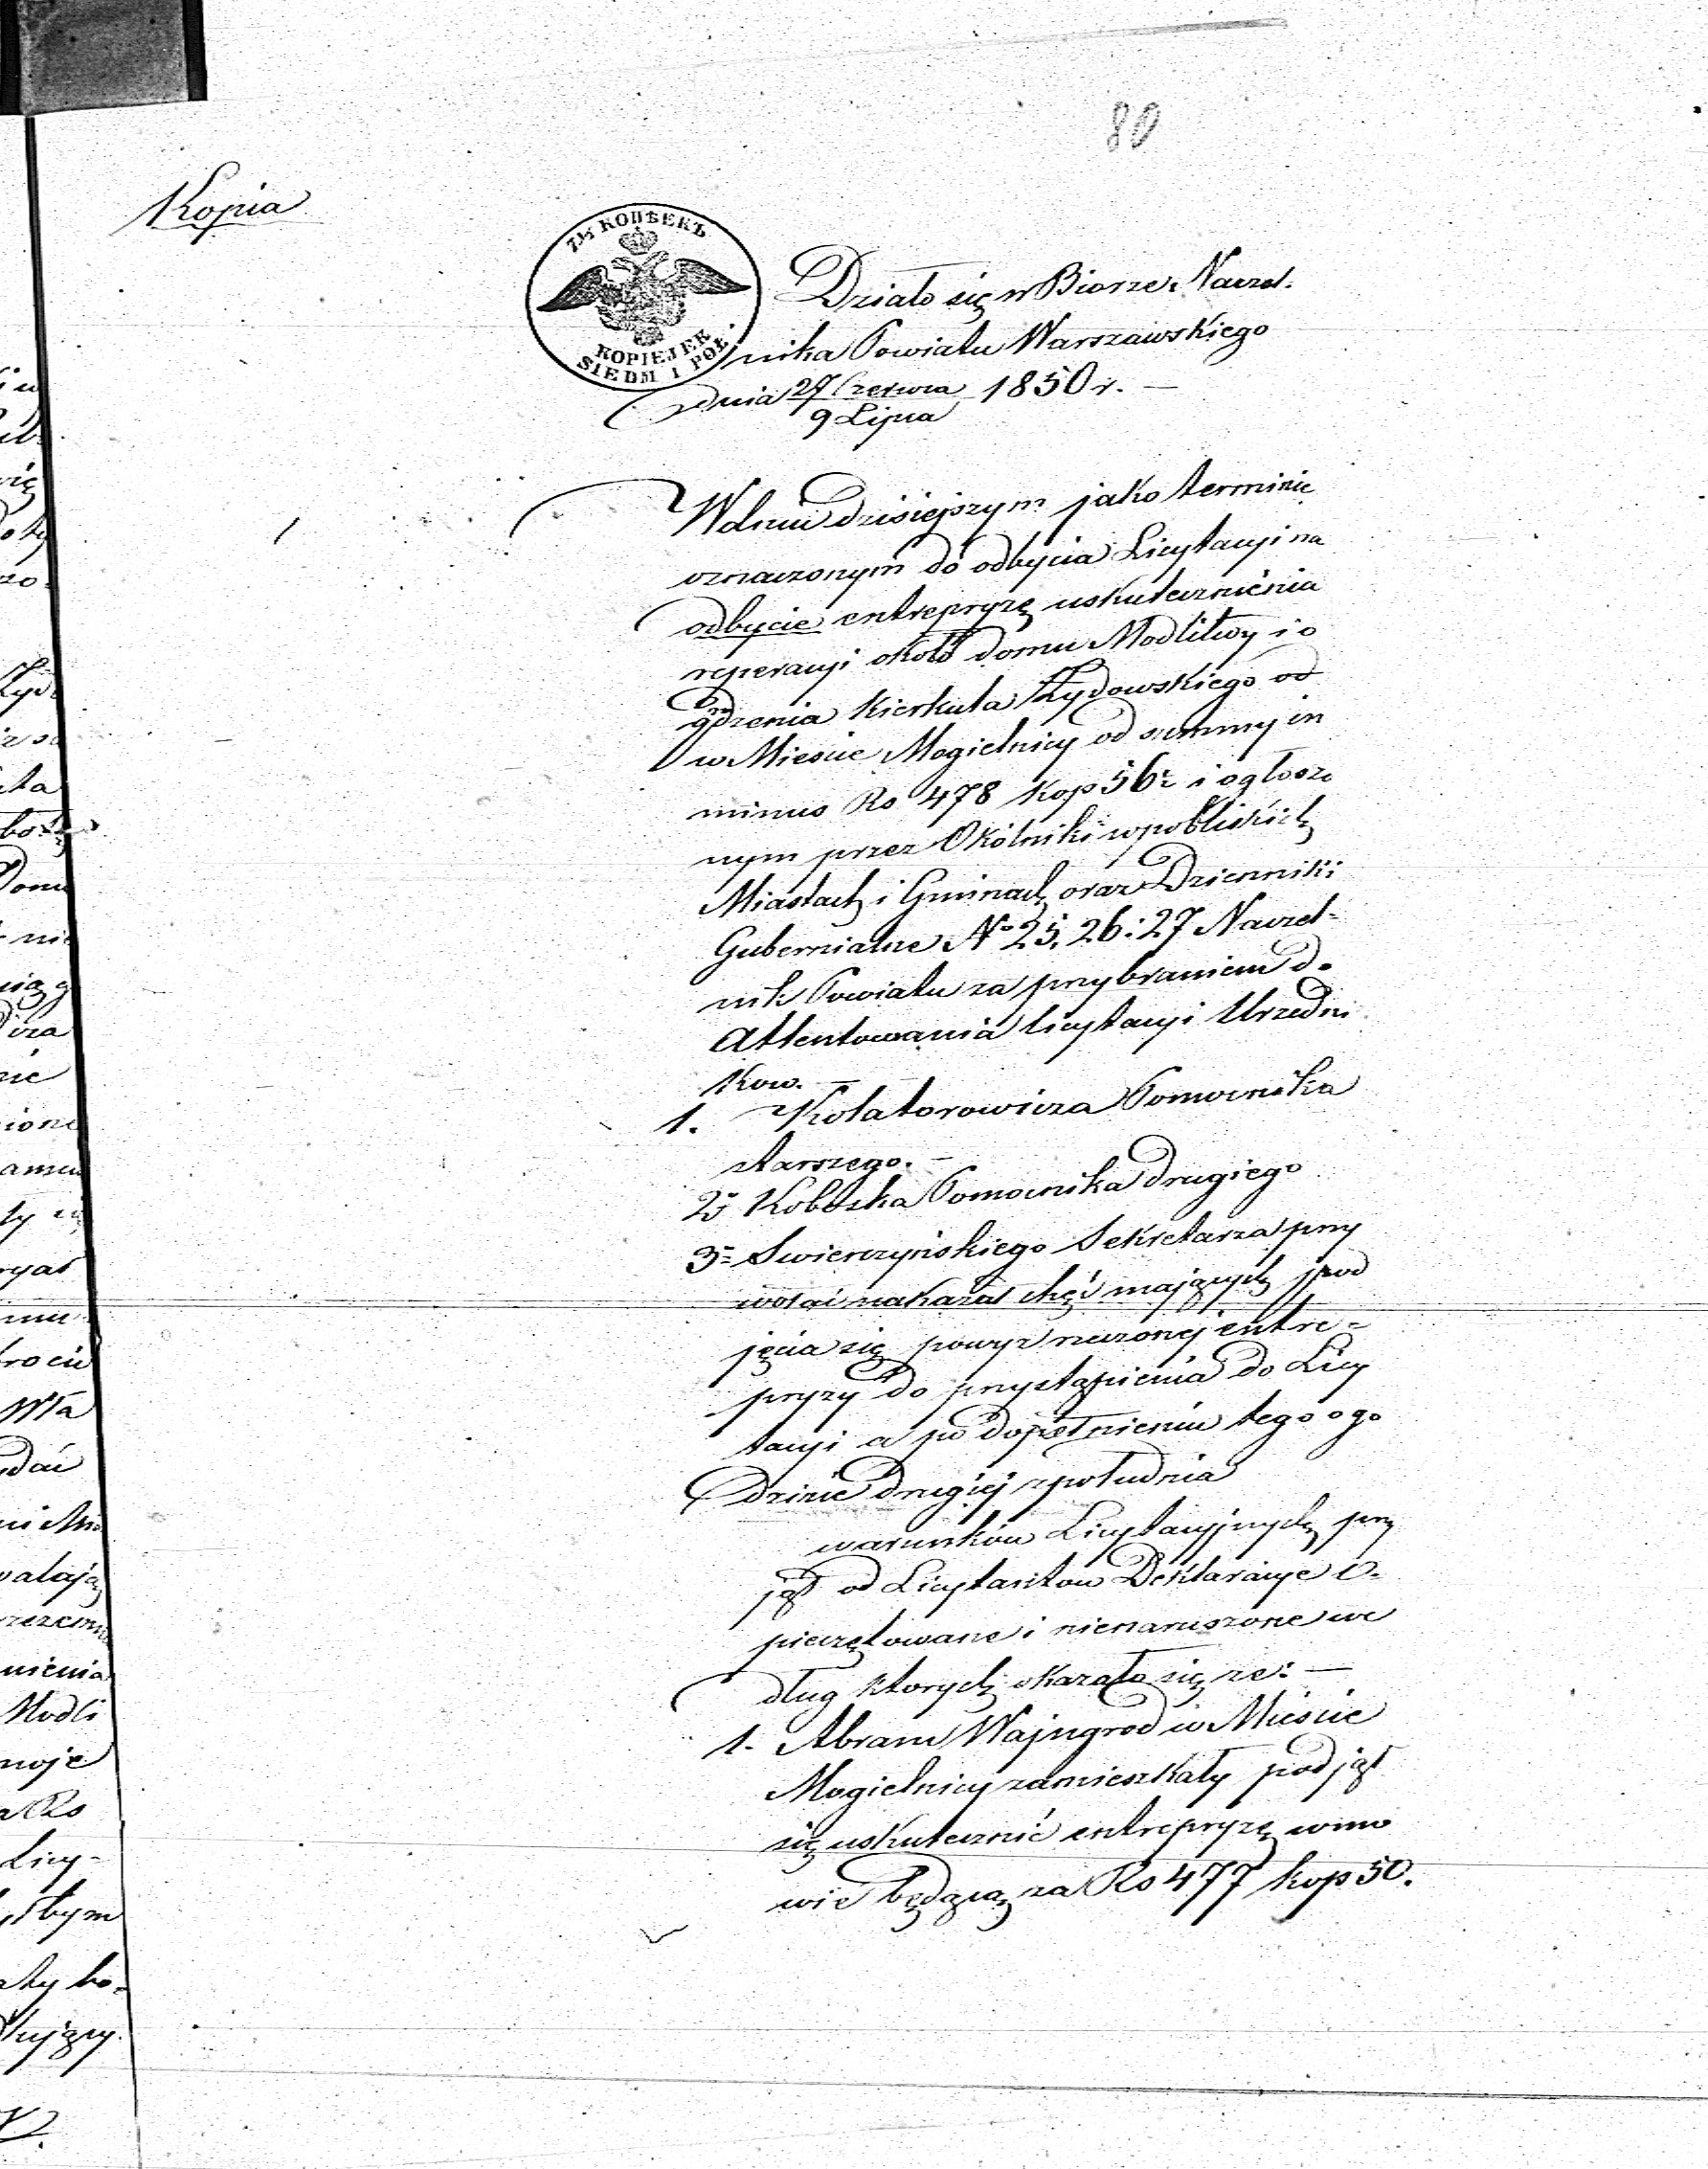 80
Kopia
7½ КОПѢЕКЪ
KOPIEJEK
SIEDM I POŁ.
Działo się w Biorze Naczel.
nika Powiatu Warszawskiego
dnia 27 Czerwca 1850 r. —
9 Lipca
W dniu dzisiejszym jako terminie
oznaczonym do odbycia Licytacyi na
odbycie entrepryzę uskutecznienia
reperacyi około domu Modlitwy i o
grdzenia Kierkuta Żydowskiego od
w Miescie Mogielnicy od summy in
minus Rs 478 Kop 56½ i ogłoszo
nym przez Okólniki w pobliskich
Miastach i Gminach oraz Dzienniki
Gubernialne No 25, 26 i 27 Naczel-
nik Powiatu za przybraniem do
Attentowania licytacyi Urzedni
kow. —
1. Kolatorowicza Pomocnika
starszego. —
2o Koboska Pomocnika drugiego
3o Swierczyńskiego Sekretarza przy
wołać nakazał chęć mających pod
jęcia się powyz rzeczonej entre-
pryzy do przystąpienia do Licy
tacyi a po dopełnieniu tego o go
dzinie drugiej z południa
warunków Licytacyjnych przy
jął od Licytantow Deklaracye o-
pieczętowane i nienaruszone we
dług ktorych okazało się ze: —
1. Abram Wajngrod w Miescie
Mogielnicy zamieszkały podjął
się uskutecznić entrepryzę w mo
wie będącą za Rs 477 kop 50.